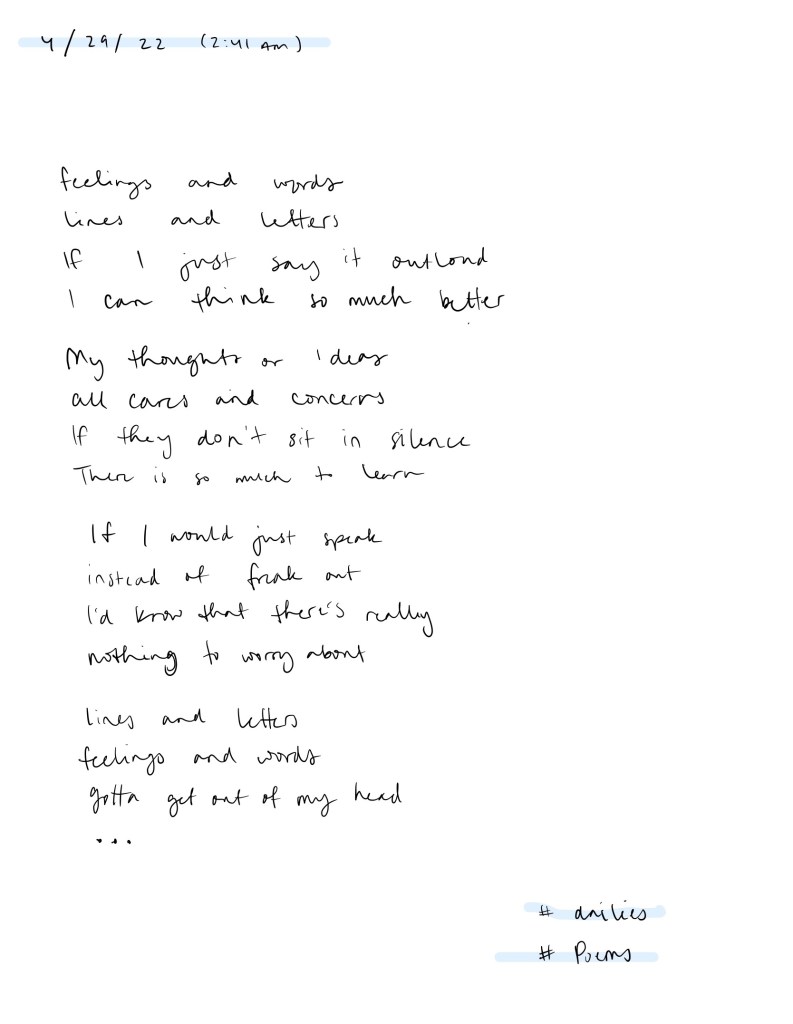 4/29/22 (2:41 AM)
feelings and words
lines and letters
If I just say it outloud
I can think so much better
My thoughts or Ideas
all cares and concerns
If they don't sit in silence
There is so much to learn
If I would just speak
instead of freak out
I'd know that there's really
nothing to worry about
lines and letters
feelings and words
gotta get out of my head
...
# dailies
# Poems